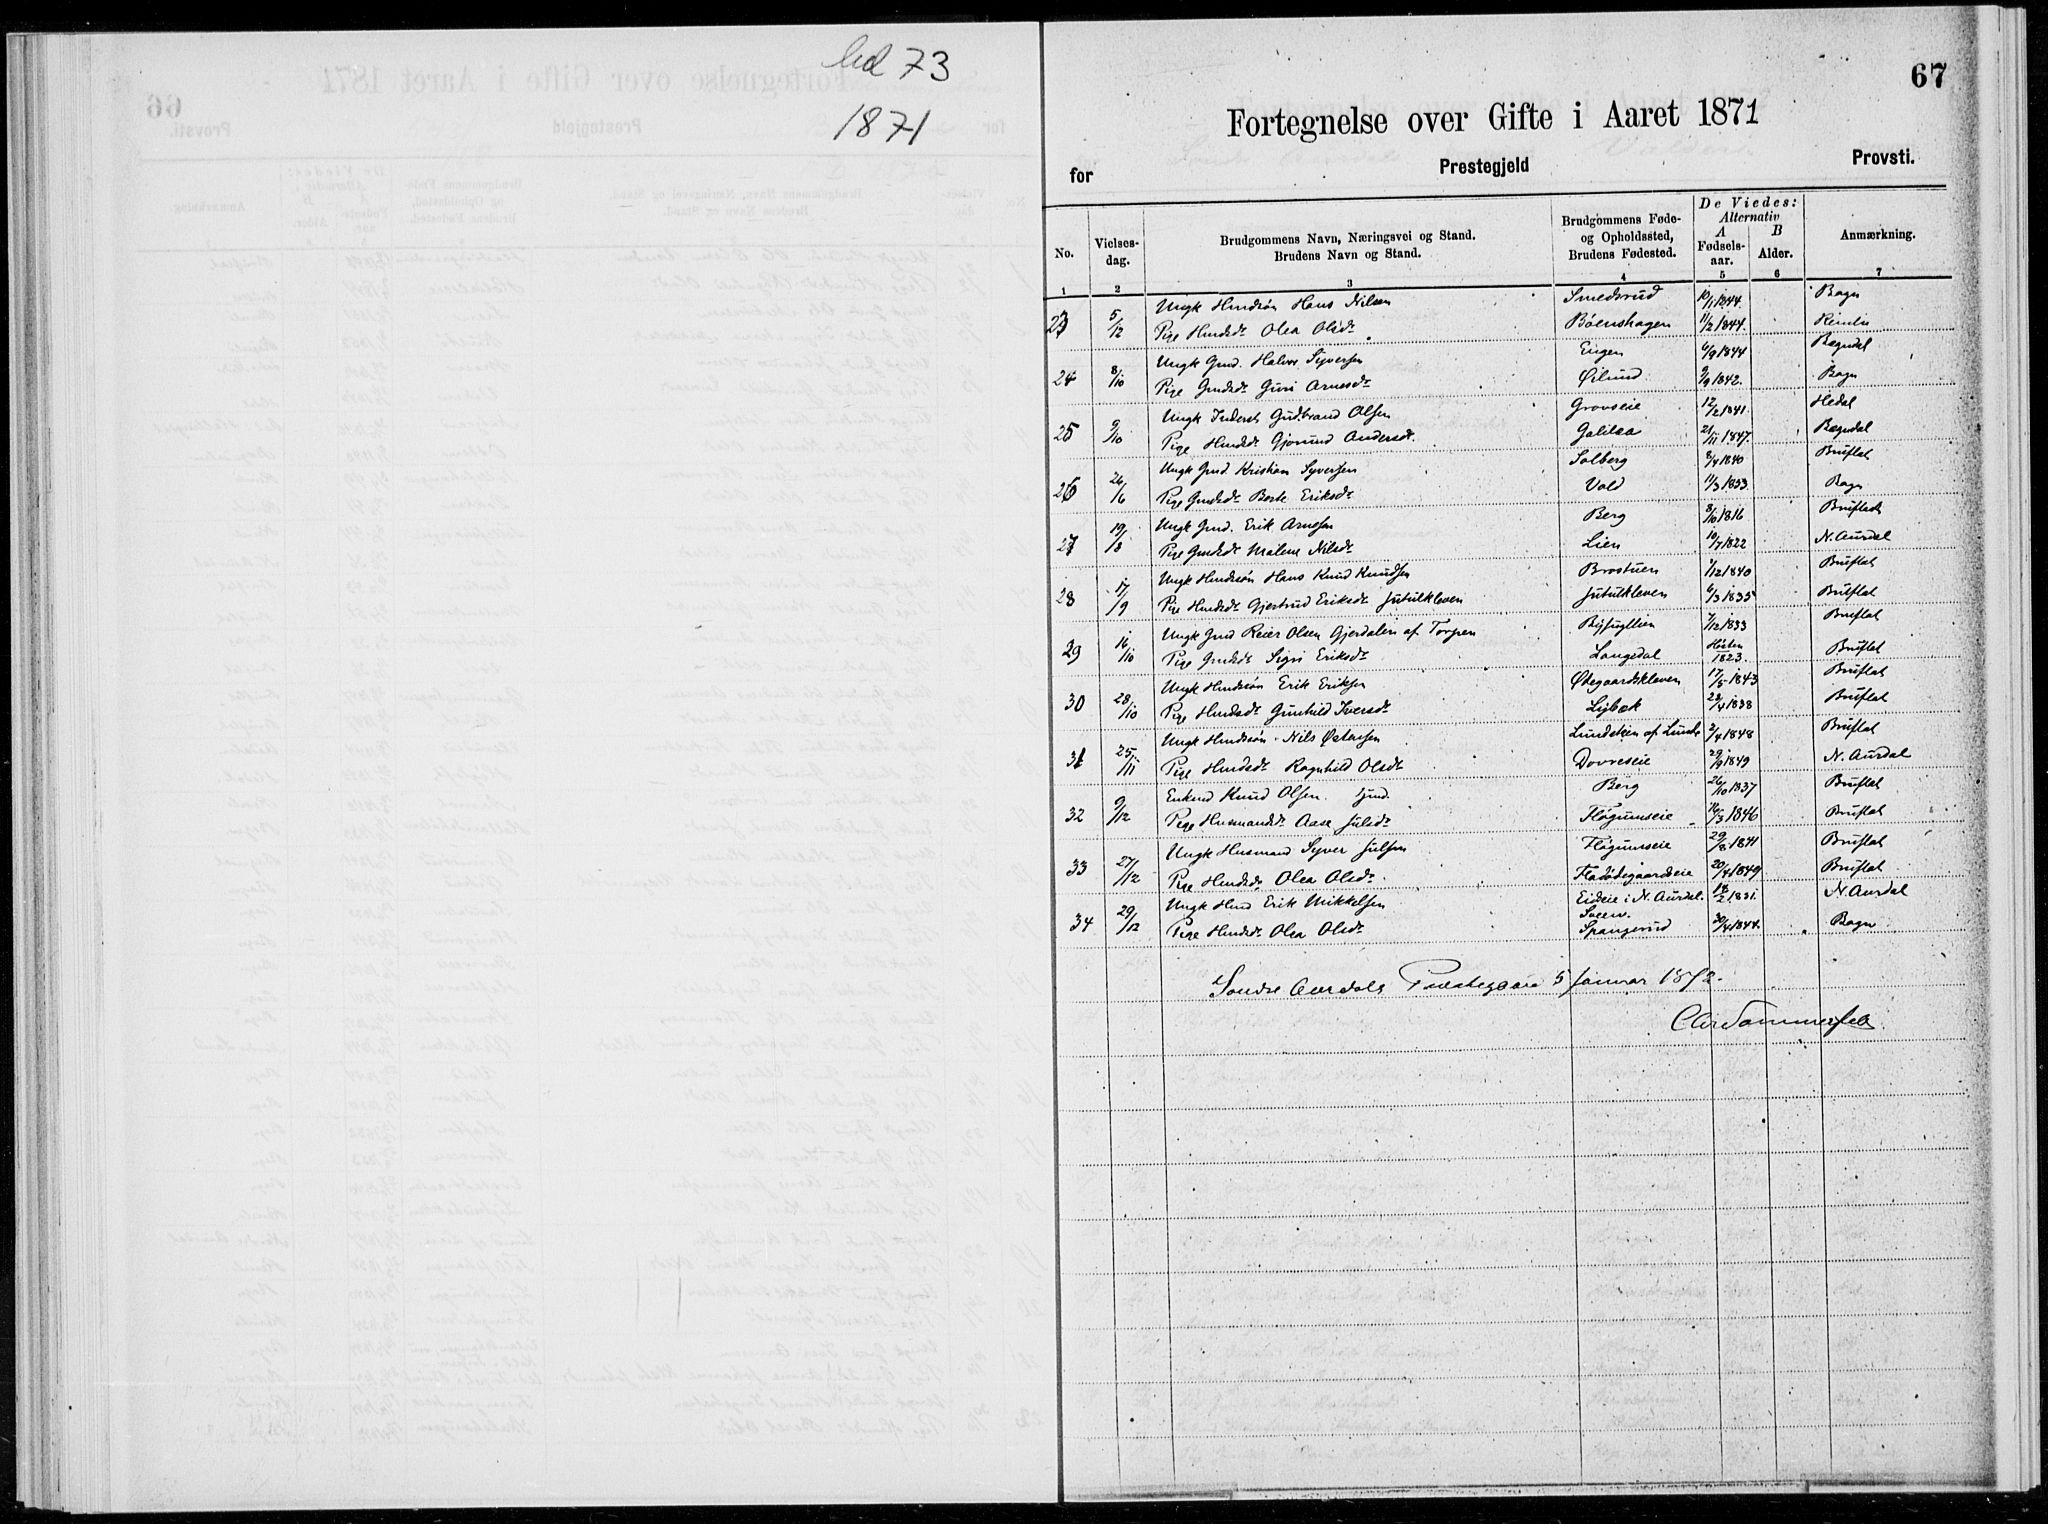 led 73
1871
67
Fortegnelse over Gifte i Aaret 1871
for Prestegjeld Provsti.
No. Vielses-dag. Brudgommens Navn, Næringsvei og Stand. Brudens Navn og Stand. Brudgommens Føde- og Opholdssted, Brudens Fødested. De Viedes: Alternativ A Fødsels-aar. B Alder. Anmærkning.
1 2 3 4 5 6 7
23 5/12 Ungk Hmdsøn Hans Nilsen Smedsrud 10/1 1844. Bagn
Pige Hmdsdt Olea Olsdt Bøenshagen 11/2 1844. Reinlie
24 8/10 Ungk Gmd. Halvor Syversen Engen 6/9 1844 Bægndal
Pige Gmdsdt Guri Arnesdt Øilund 9/9 1842. Bagn
25 9/10 Ungk Inderst Gudbrand Olsen Grovseie 12/2 1841. Hedal
Pige Hmdsdt Gjørund Andersdt. Galilæa 21/11 1847. Bægndal
26 26/6 Ungk Gmd Kristian Syversen Solberg 8/4 1840 Bruflat
Pige Gmdsdt Berte Eriksdt Vold 11/3 1853. Bagn
27 19/3 Ungk Gmd. Erik Arnesen Berg 8/10 1816 Bruflat
Pige Gmdsdt Malene Nilsdt Lien 10/7 1822 N. Aurdal
28 17/9 Ungk Hmdssøn Hans Knud Knudsen Brostuen /12 1840 Bruflat
Pige Hmdsdt Gjertrud Eriksdt Jutulkleven Jutulkleven 6/3 1835 Bruflat
29 16/10 Ungk Gmd Reier Olsen Gjerdalen af Torpen 7/12 1833 Bruflat
Pige Gmdsdt Sigri Eriksdt Langedal Høsten 1823. Bruflat
30 28/10 Ungk Hmdssøn Erik Eriksen Ødegaardskleven 17/5 1843 Bruflat
Pige Hmdsdt Gunhild Iversdt Lybæk 28/4 1838 Bruflat
31 25/11 Ungk Hmdssøn Nils Østensen Lundsteen af Lunde 2/4 1848 Bruflat
Pige Hmdsdt Ragnhild Olsdt Dovreseie 29/9 1849 N. Aurdal
32 9/12 Enkmd Knud Olsen. Gmd. Berg 26/10 1837 Bruflat
Pige Husmandsdt Aase Julsdt Fløgumseie 16/3 1846 Bruflat
33 27/12 Ungk Husmand Syver Julsen Fløgumseie 29/8 1841 Bruflat
Pige Hmdsdt Olea Olsdt. Fladødegaardseie 20/4 1849 Bruflat
34 29/12 Ungk Hmd Erik Mikkelsen Eideie i N. Aurdal. /2 1831. N. Aurdal
Pige Hmdsdt Olea Olsdt Spangerud 30/4 1844. Bagn
Søndre Aurdals Præstegaard 5 Januar 1872.
Chr Sommerfelt